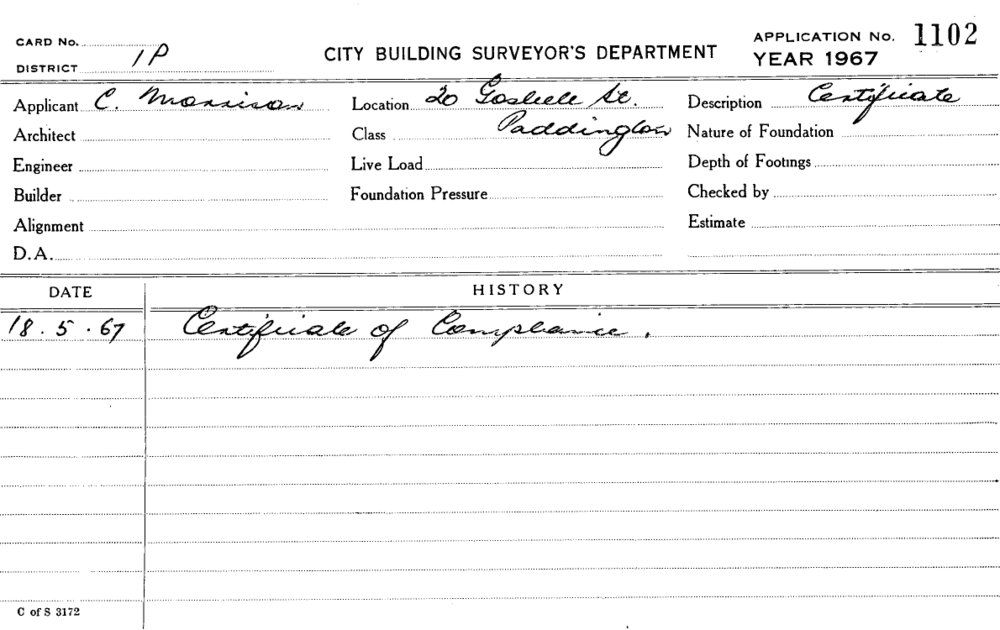 CARD No.
DISTRICT 1P
CITY BUILDING SURVEYOR'S DEPARTMENT
APPLICATION No. 1102
YEAR 1967
Applicant C. Morrison Location 20 Gosbell St. Description Certificate
Architect Class Paddington Nature of Foundation
Engineer Live Load Depth of Footings
Builder Foundation Pressure Checked by
Alignment Estimate
D.A.
DATE HISTORY
18.5.67 Certificate of Compliance.
C of S 3172